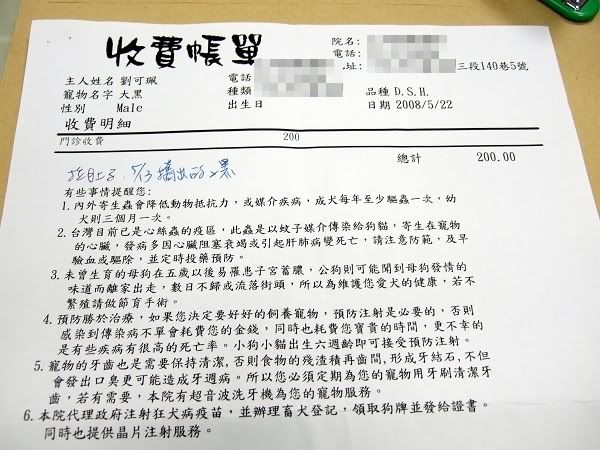 收費帳單
院名:
電話:
址: 三段140巷5號
主人姓名 劉可珮 電話
寵物名字 大黑 種類 品種 D.S.H.
性別 Male 出生日 日期 2008/5/22
收費明細
門診收費 200
總計 200.00
有些事情提醒您:
1. 內外寄生蟲會降低動物抵抗力，或媒介疾病，成犬每年至少驅蟲一次，幼
犬則三個月一次。
2. 台灣目前已是心絲蟲的疫區，此蟲是以蚊子媒介傳染給狗貓，寄生在寵物
的心臟，發病多因心臟阻塞衰竭或引起肝肺病變死亡，請注意防範，及早
驗血或驅除，並定時投藥預防。
3. 未曾生育的母狗在五歲以後易罹患子宮蓄膿，公狗則可能聞到母狗發情的
味道而離家出走，數日不歸或流落街頭，所以為維護您愛犬的健康，若不
繁殖請做節育手術。
4. 預防勝於治療，如果您決定要好好的飼養寵物，預防注射是必要的，否則
感染到傳染病不單會耗費您的金錢，同時也耗費您寶貴的時間，更不幸的
是有些疾病有很高的死亡率。小狗小貓出生六週齡即可接受預防注射。
5. 寵物的牙齒也是需要保持清潔，否則食物的殘渣積再齒間,形成牙結石,不但
會發出口臭更可能造成牙週病。所以您必須定期為您的寵物用牙刷清潔牙
齒，若有需要，本院有超音波洗牙機為您的寵物服務。
6. 本院代理政府注射狂犬病疫苗，並辦理畜犬登記，領取狗牌並發給證書。
同時也提供晶片注射服務。